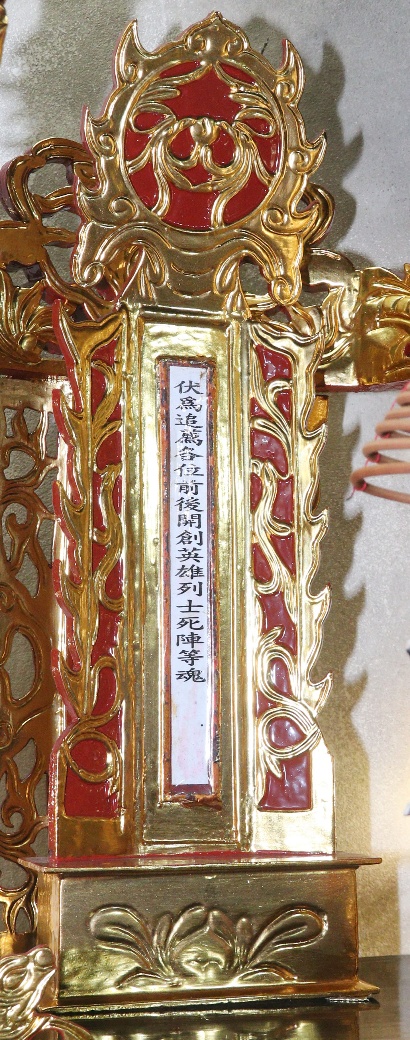 伏爲追薦各位前後開創英雄列士死陣等魂